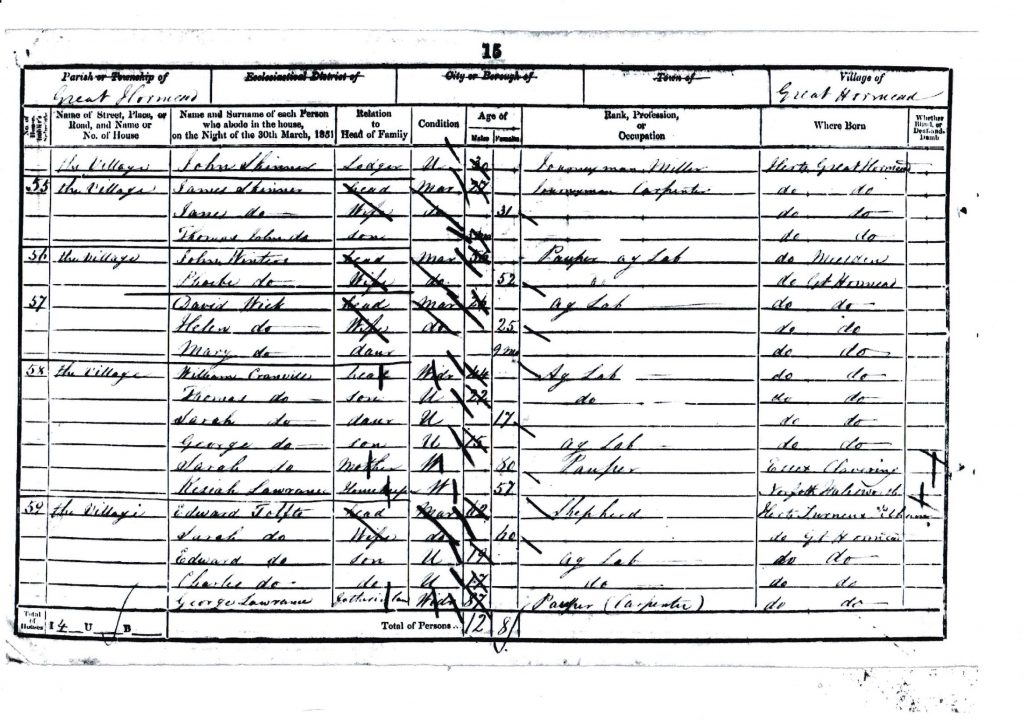 15
Parish or Township of Ecclesiastical District of City or Borough of Town of Village of
Great Hormead Great Hormead
Name of Street, Place, or Road, and Name or No. of House Name and Surname of each Person who abode in the house, on the Night of the 30th March, 1851 Relation to Head of Family Condition Age of Males Females Rank, Profession, or Occupation Where Born Whether Blind, or Deaf-and-Dumb
the Village John Skinner Lodger U Journeyman Miller Herts Great Hormead
55 the Village James Skinner head Mar 27 Journeyman Carpenter do do
Jane do Wife do 31 do do
Thomas John do son do do
56 the Village John Winters head Mar Pauper ag Lab do
Phoebe do Wife do 52 do Gt Hormead
57 David Wick head Mar ag Lab do do
Helen do Wife do 25 do do
Mary do daur 9 mo do do
58 the Village William head Widr 44 Ag Lab do do
Thomas do son U 22 do do do
Sarah do daur U 17 do do
George do son U 15 ag Lab do do
Sarah do Mother W 80 Pauper Essex Clavering
Kesiah Lawrance W 57 Norfolk
59 the Village Edward head Mar 62 Shepherd Herts
Sarah do Wife do 60 do Gt Hormead
Edward do son U 19 ag Lab do do
Charles do do U 17 do do do
George Lawrance Widr 87 Pauper (Carpenter) do do
Total of Houses I 4 U B Total of Persons 12 8